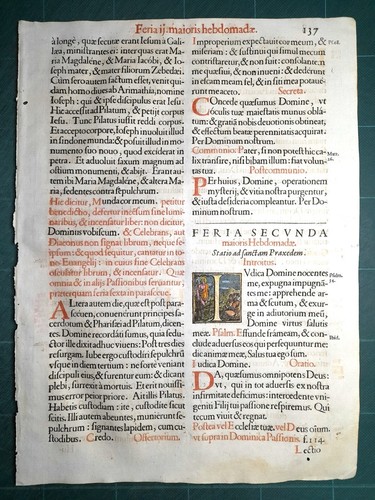 Feria ij. maioris hebdomadæ. 137
à longè, quæ secutæ erant Iesum à Gali-
læa, ministrantes ei: inter quas erat Ma-
ria Magdaléne, & Maria Iacóbi, & Io-
seph mater, & mater filiorum Zebedæi.
Cum sero autem factum esset, venit qui-
dam homo diues ab Arimathia, nomine
Ioseph: qui & ipse discipulus erat Iesu:
Hic accessit ad Pilatum, & petijt corpus
Iesu. Tunc Pilatus iussit reddi corpus.
Et accepto corpore, Ioseph inuoluit illud
in sindone munda: & posuit illud in mo-
numento suo nouo, quod exciderat in
petra. Et aduoluit saxum magnum ad
ostium monumenti, & abijt. Erant au-
tem ibi Maria Magdaléne, & altera Ma-
ria, sedentes contra sepulchrum.
Hic dicitur, Munda cor meum. petitur
benedictio, deferuntur incensum sine lumi-
naribus, & incensatur liber: non dicitur,
Dominus vobiscum. & Celebrans, aut
Diaconus non signat librum, neque se
ipsum: & quod sequitur, cantatur in to-
no Euangelij: in cuius fine Celebrans
osculatur librum, & incensatur. Quæ
omnia & in alijs Passionibus seruantur,
præterquam feria sexta in parasceue.
ALtera autem die, quæ est post para-
sceuen, conuenerunt principes sa-
cerdotum & Pharisæi ad Pilatum, dicen-
tes. Domine recordati sumus, quia sedu-
ctor ille dixit adhuc viuens: Post tres dies
resurgam. Iube ergo custodiri sepulchrū
vsque in diem tertium: ne forte veniant
discipuli eius, & furentur eum: & dicant
plebi, surrexit à mortuis. Et erit nouissi-
mus error peior priore. Ait illis Pilatus.
Habetis custodiam: ite, custodite sicut
scitis. Illi autem abeuntes, munierunt se-
pulchrum: signantes lapidem, cum cu-
stodibus. Credo. Offertorium.
IMproperium expectauit cor meum, & Psal.
miseriam: & sustinui qui simul mecum
contristaretur, & non fuit: consolante m
me quæsiui, & non inueni: & dederunt
in escam meam fel, & in siti mea potaue-
runt me aceto. Secreta.
COncede quæsumus Domine, vt
oculis tuæ maiestatis munus obla-
tum: & gratiā nobis deuotionis obtineat,
& effectum beatæ perennitatis acquirat.
Per Dominum nostrum.
Communio Pater, si non potest hic ca- Mat.
lix transire, nisi bibam illum: fiat volun-
tas tua. Postcommunio.
PEr huius, Domine, operationem
mysterij, & vitia nostra purgentur,
& iusta desideria compleantur. Per Do-
minum nostrum.
FERIA SECVNDA
maioris Hebdomadæ.
Statio ad sanctam Praxedem.
Introitus.
IVdica Domine nocentes Psalm.
me, expugna impugnan-
tes me: apprehende ar-
ma & scutum, & exur-
ge in adiutorium meū,
Domine virtus salutis
meæ. Psalm. Effunde frameam, & con- Ibid.
clude aduersus eos qui persequuntur me:
dic animæ meæ, Salus tua ego sum.
Iudica Domine. Oratio.
DA, quæsumus omnipotens Deus:
vt, qui in tot aduersis ex nostra
infirmitate deficimus: intercedente vni-
geniti Filij tui passione respiremus. Qui
tecum viuit & regnat.
Postea vel Ecclesiæ tuæ. vel Deus oīum.
vt supra in Dominica Passionis. f. 114.
Lectio